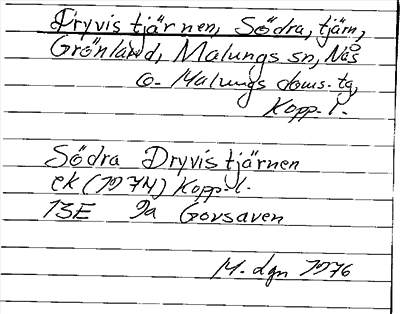 Dryvistjärnen, Södra, tjärn,
Grönland, Malungs sn, Nås
o. Malungs doms. tg,
Kopp. l.
Södra Dryvistjärnen
ek (1974) Kopp. l.
13E 9a Govsaven
M. dgn 1976